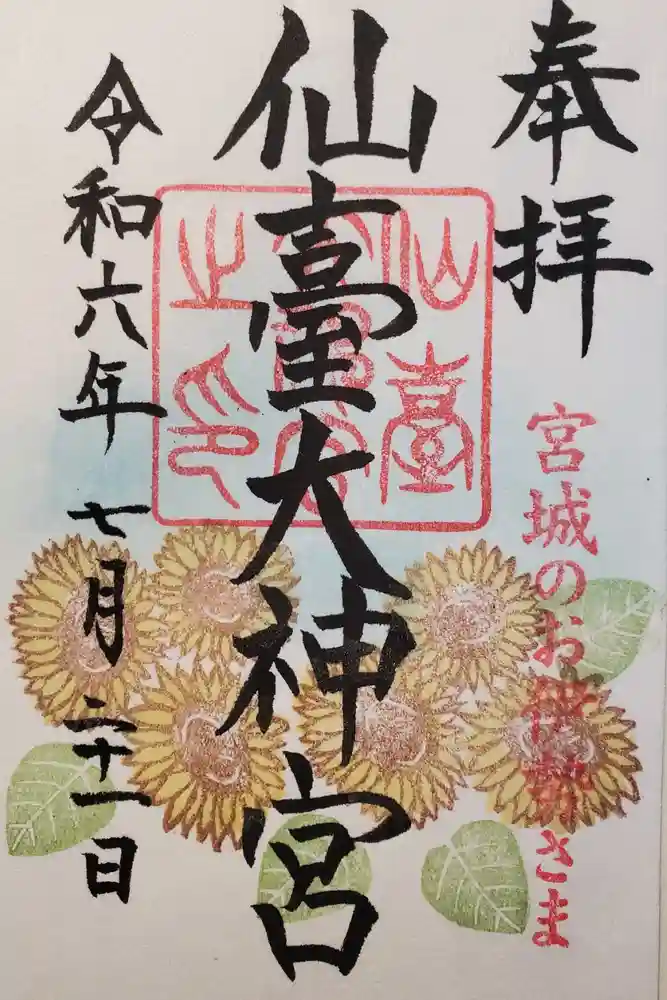 奉拝
宮城のお伊勢さま
仙臺大神宮
仙臺
之印
令和六年七月二十一日